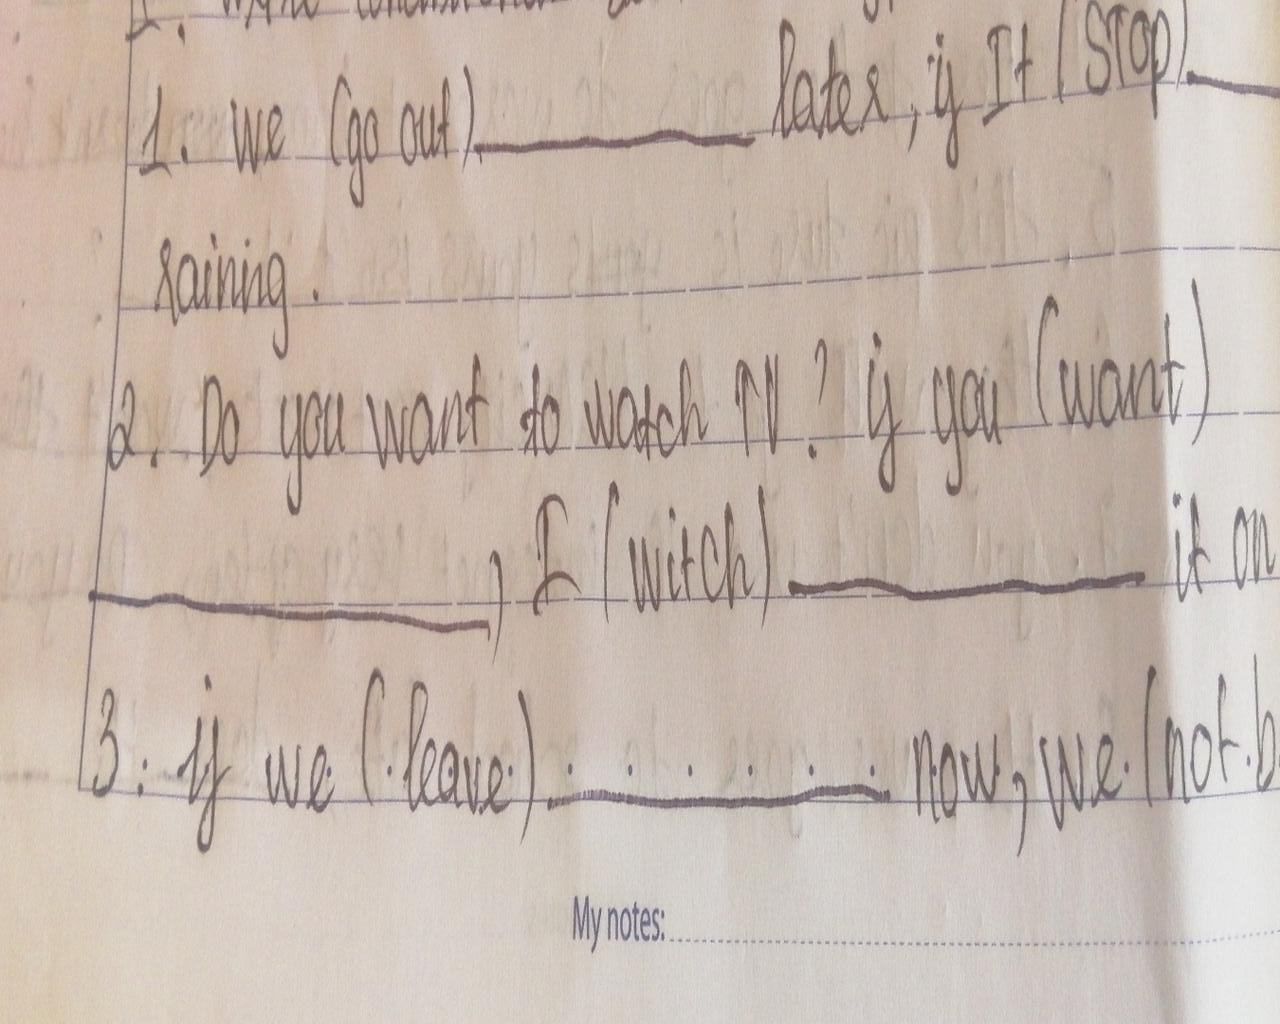 1. we (go out) ________ later, if It (STop) ____
raining.
2. Do you want to watch TV? if you (want)
________, I (witch) ________ it on
3. if we (leave) ________ now, we (not b
My notes: